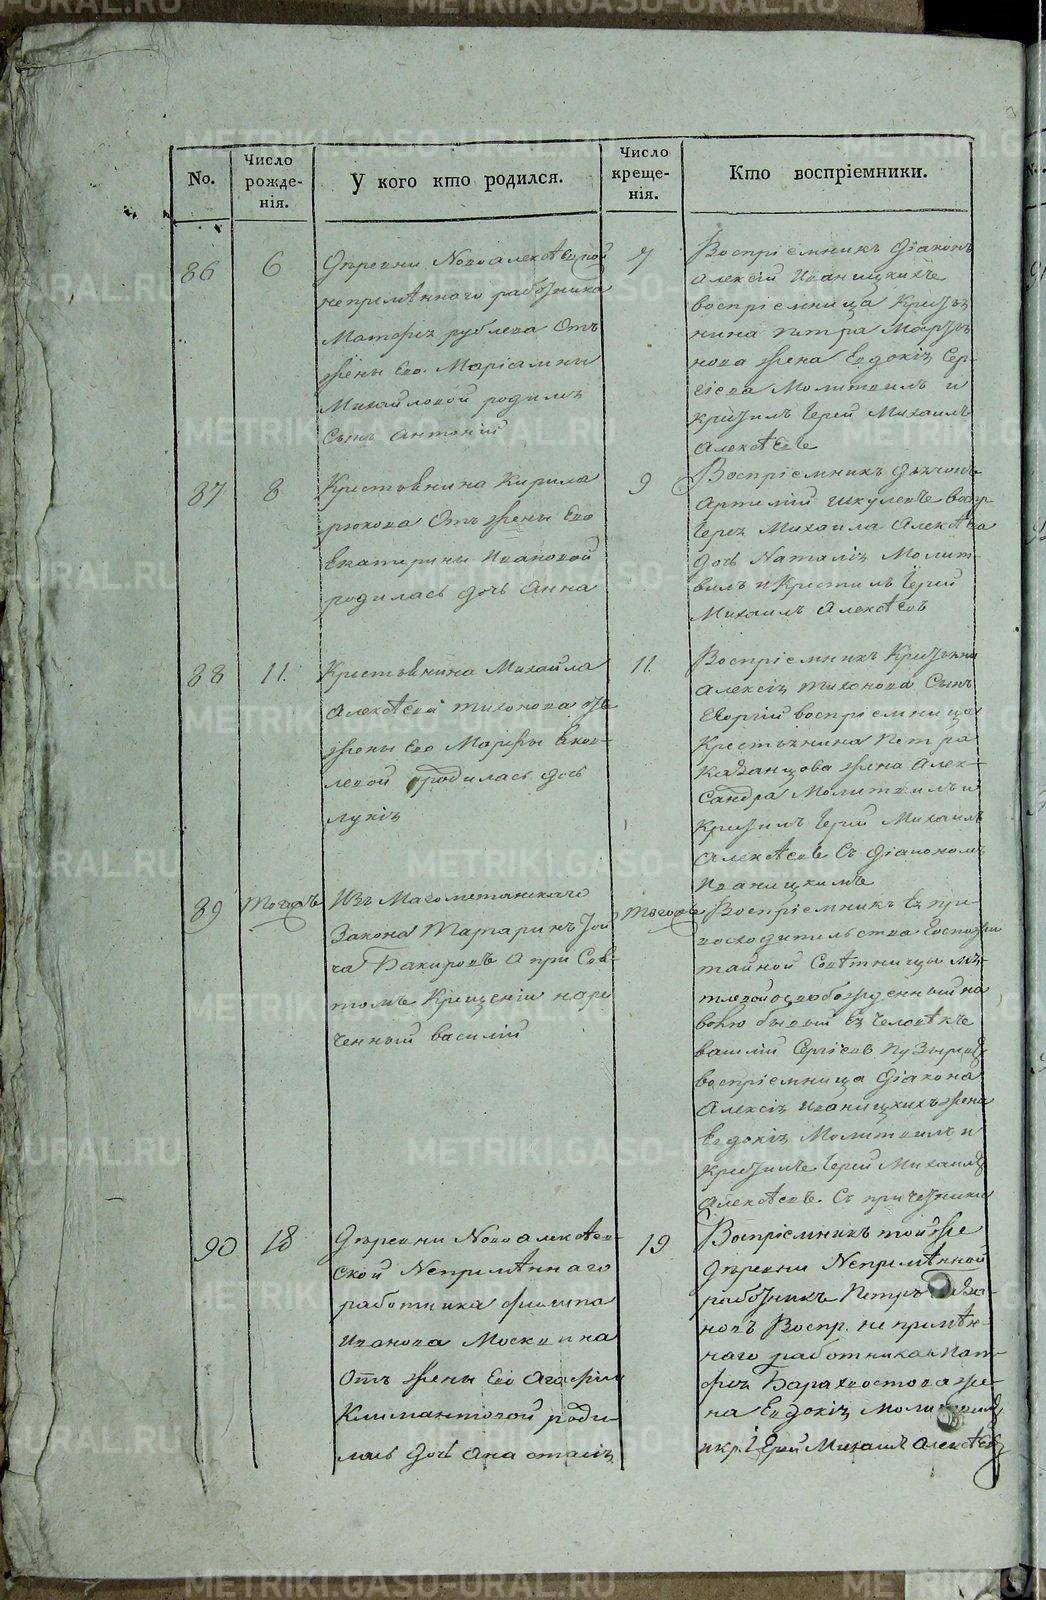 No.
Число рожде-нія.
У кого кто родился.
Число креще-нія.
Кто воспріемники.
86
6
Дѣревни Новоалексѣевской
непримѣннаго работника
Матфея рублева Отъ
жены Его Маріамны
Михайловой родился
Сынъ Антоній
7
Воспріемникъ Діаконъ
Алексій Иваницкихъ
воспріемница Крестья
нина петра Март
нова жена Евдокія Сер-
гіева Молитвилъ и
крестилъ Іерей Михаилъ
Алексѣевъ
87
8
Крестьянина Кирила
рюкова Отъ жены Его
Екатерины Ивановой
родилась дочь Анна
9
Воспріемникъ дьячокъ
Артемій воспр
Іерея Михаила Алексѣева
дочь Наталія Молит-
вилъ и Крестилъ Іерей
Михаилъ Алексѣевъ
88
11.
Крестьянина Михайла
Алексѣева тихонова отъ
жены Его Марфы Яков-
левой родилась дочь
лукія
11.
Воспріемникъ Крестьяни
Алексія тихонова Сынъ
Георгій воспріемница
Крестьянина Петра
Казанцова жена Алек-
сандра Молитвилъ и
Крестилъ Іерей Михаилъ
Алексѣевъ Съ діакономъ
Иваницкимъ
89
тогожъ
Изъ Магометанскаго
Закона Тартаринъ
Бакировъ А при Свя-
томъ Крещеніи наре
ченный василій
тогожъ
Воспріемникъ Ея пре-
восходительства Госпожи
тайной Совѣтницы Мя-
тлевой освобожденный на
волю бывый Ея человѣкъ
василій Сергіевъ Пузыревъ
воспріемница Діакона
Алексія Иваницкихъ жена
Евдокія Молитвилъ и
Крестилъ Іерей Михаилъ
Алексѣевъ. Съ причетники
90
18
Дѣревни Новоалексѣев-
ской Непримѣннаго
работника Филипа
Иванова Москвина
Отъ жены Его Агафіи
Климантовой роди-
лась дочь Анастасія
19
Воспріемникъ той же
Дѣревни Непримѣнной
работникъ Петръ
новъ Воспр. непримѣн-
наго работника Мат-
фея Барахвостова же-
на Евдокія Молитвилъ
и кр. Іерей Михаилъ Алексѣевъ
METRIKI.GASO-URAL.RU